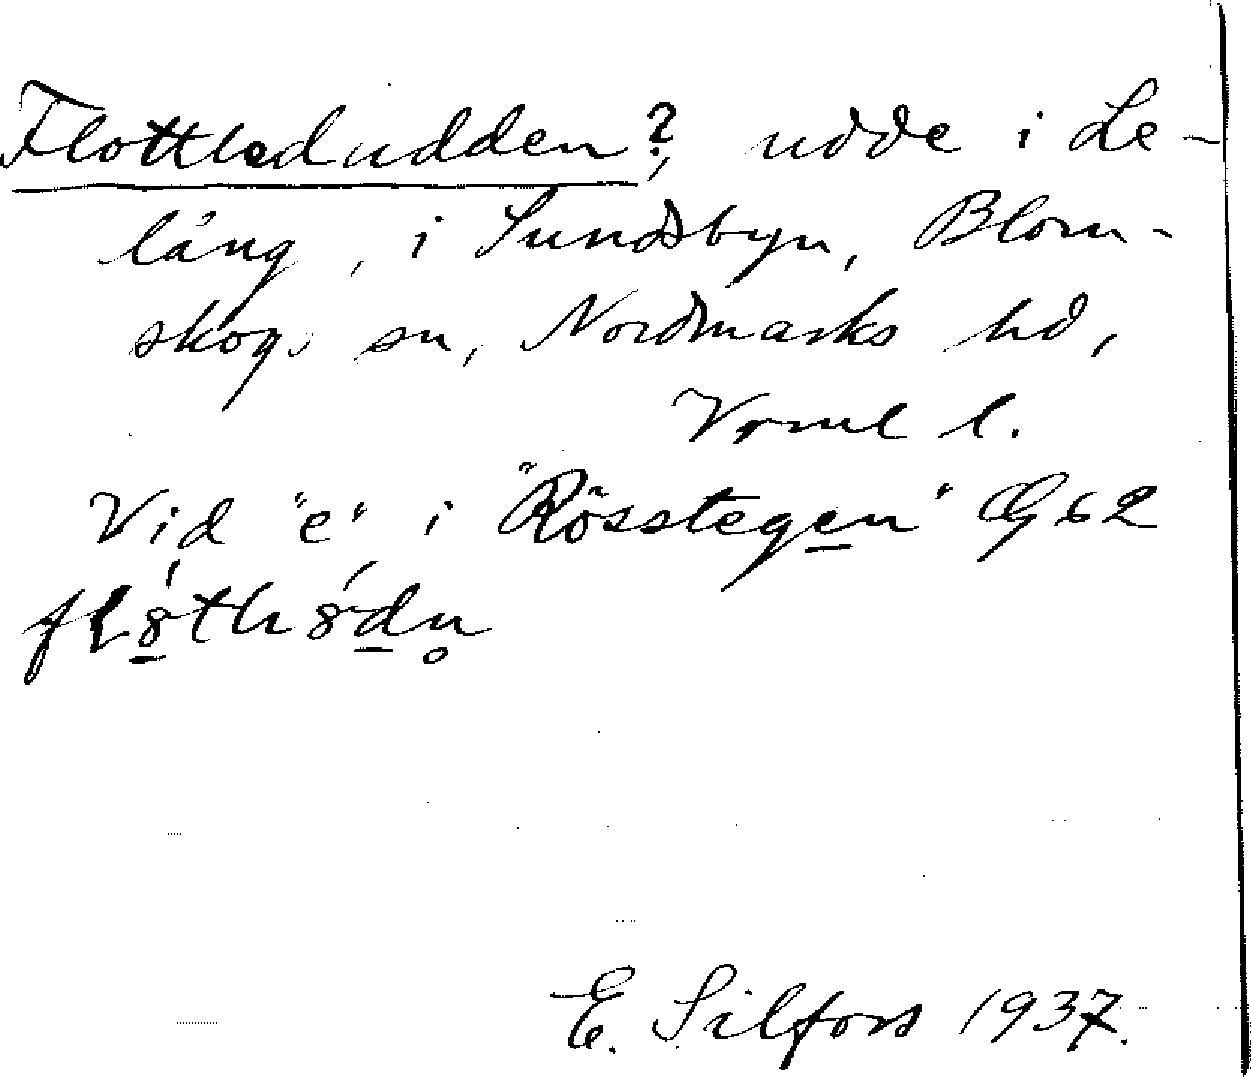 Flottledudden?, udde i Le-
lång, i Sundsbyn, Blom-
skogs sn, Nordmarks hd,
Vrml l.
Vid "e" i "Rösstegen"
E. Silfors 1937.